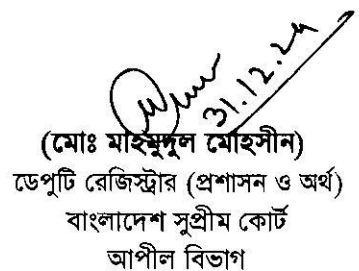 31.12.24
(মোঃ মাহমুদুল মোহসীন)
ডেপুটি রেজিস্ট্রার (প্রশাসন ও অর্থ)
বাংলাদেশ সুপ্রীম কোর্ট
আপীল বিভাগ